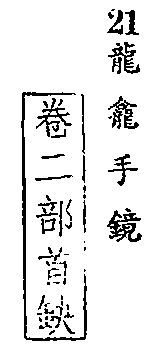 21龍龕手鏡
卷二部首鈌